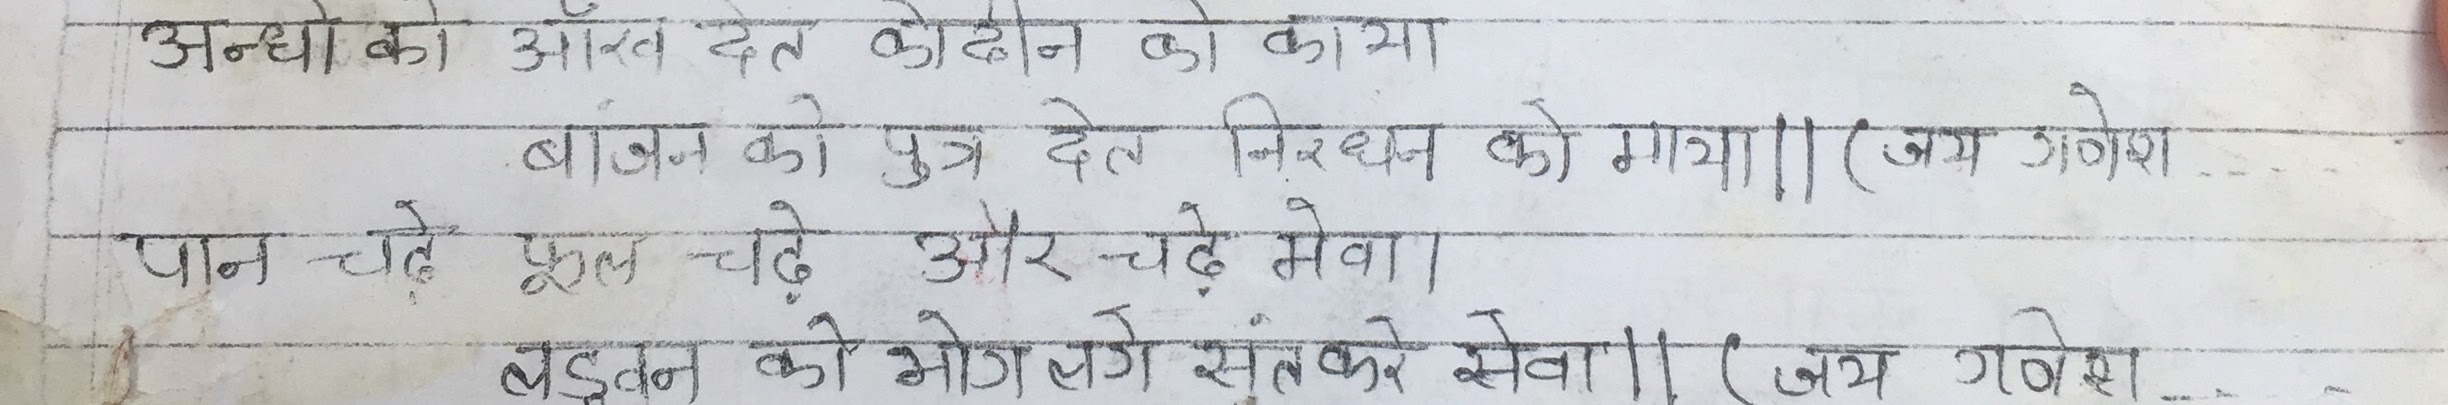 अन्धो को आँख देत कोढीन को काया
बांजन को पुत्र देत निरधन को माया|| (जय गणेश .....
पान चढ़े फूल चढ़े और चढ़े मेवा।
लडुवन को भोग लगे संत करे सेवा|| (जय गणेश .....